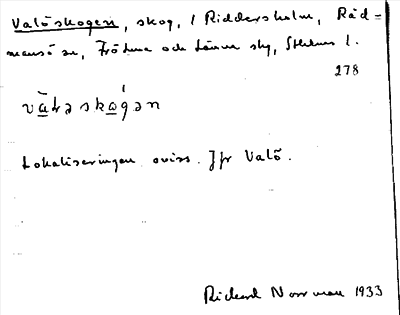 Valöskogen, skog, / Riddersholm, Råd-
mansö sn, Frötuna och Länna skg, Sthlms l.
278
vā̀ləskò̱gən
Lokaliseringen oviss. Jfr Valö.
Rickard Norrman 1933